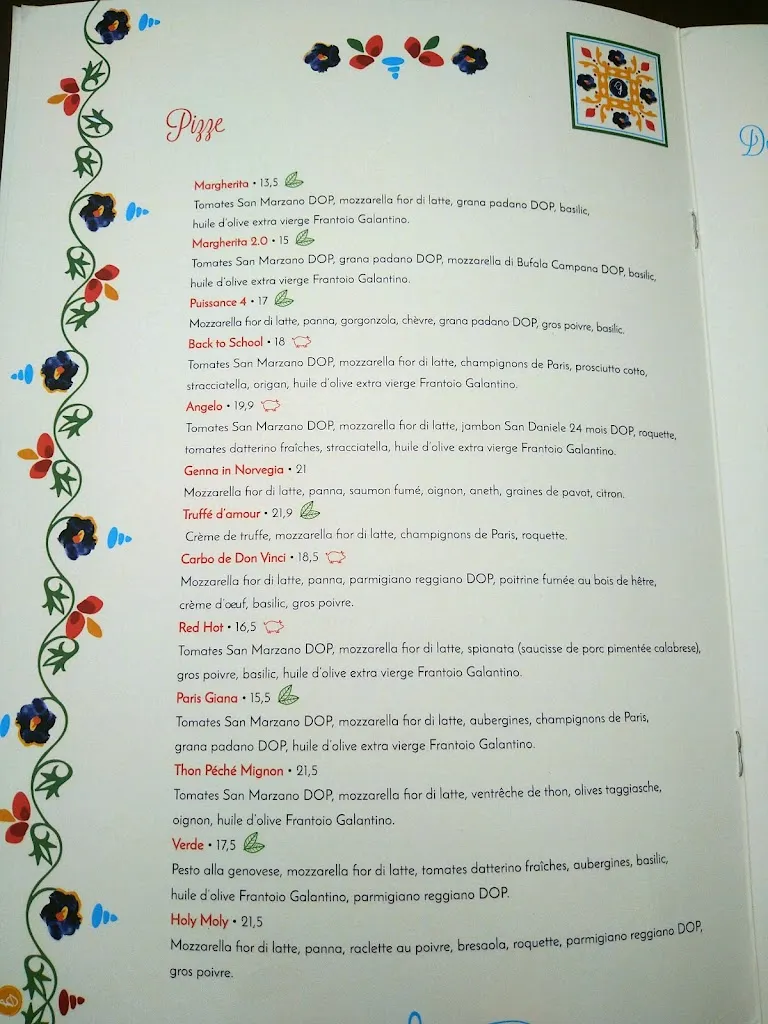 Pizze
Margherita • 13,5
Tomates San Marzano DOP, mozzarella fior di latte, grana padano DOP, basilic,
huile d'olive extra vierge Frantoio Galantino.
Margherita 2.0 • 15
Tomates San Marzano DOP, grana padano DOP, mozzarella di Bufala Campana DOP, basilic,
huile d'olive extra vierge Frantoio Galantino.
Puissance 4 • 17
Mozzarella fior di latte, panna, gorgonzola, chèvre, grana padano DOP, gros poivre, basilic.
Back to School • 18
Tomates San Marzano DOP, mozzarella fior di latte, champignons de Paris, prosciutto cotto,
stracciatella, origan, huile d'olive extra vierge Frantoio Galantino.
Angelo • 19,9
Tomates San Marzano DOP, mozzarella fior di latte, jambon San Daniele 24 mois DOP, roquette,
tomates datterino fraîches, stracciatella, huile d'olive extra vierge Frantoio Galantino.
Genna in Norvegia • 21
Mozzarella fior di latte, panna, saumon fumé, oignon, aneth, graines de pavot, citron.
Truffé d'amour • 21,9
Crème de truffe, mozzarella fior di latte, champignons de Paris, roquette.
Carbo de Don Vinci • 18,5
Mozzarella fior di latte, panna, parmigiano reggiano DOP, poitrine fumée au bois de hêtre,
crème d'oeuf, basilic, gros poivre.
Red Hot • 16,5
Tomates San Marzano DOP, mozzarella fior di latte, spianata (saucisse de porc pimentée calabrese),
gros poivre, basilic, huile d'olive extra vierge Frantoio Galantino.
Paris Giana • 15,5
Tomates San Marzano DOP, mozzarella fior di latte, aubergines, champignons de Paris,
grana padano DOP, huile d'olive extra vierge Frantoio Galantino.
Thon Péché Mignon • 21,5
Tomates San Marzano DOP, mozzarella fior di latte, ventrêche de thon, olives taggiasche,
oignon, huile d'olive extra vierge Frantoio Galantino.
Verde • 17,5
Pesto alla genovese, mozzarella fior di latte, tomates datterino fraîches, aubergines, basilic,
huile d'olive Frantoio Galantino, parmigiano reggiano DOP.
Holy Moly • 21,5
Mozzarella fior di latte, panna, raclette au poivre, bresaola, roquette, parmigiano reggiano DOP,
gros poivre.